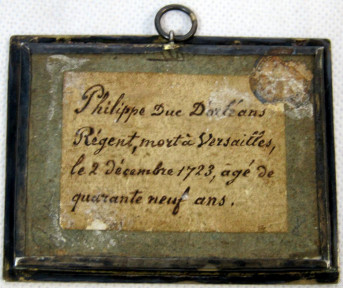 Philippe Duc Dorléans
Régent, mort à Versailles,
le 2 décembre 1723, agé de
quarante neuf ans.